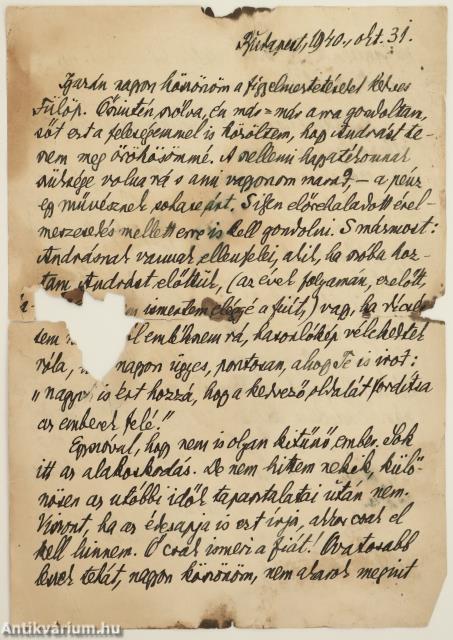 Budapest, 1940., okt. 31.
Igazán nagyon köszönöm a figyelmeztetésedet kedves
Fülöp. Őszintén szólva, én már-már arra gondoltam,
sőt ezt a feleségemmel is közöltem, hogy Andrást te-
szem meg örökösömmé. A szellemi hagyatékomnak
szüksége volna rá s ami vagyonom marad, – a pénz
egy művésznek sohase árt. Ilyen előrehaladott érel-
meszesedés mellett erre is kell gondolni. S mármost:
Andrásnak vannak ellenfelei, akik, ha szóba hoz-
tam Andrást előttük, (az évek folyamán, ezelőtt,
ismertem eléggé a fiút,) vagy, ha
sem rá, hasonlókép vélekedtek
róla, nagyon ügyes, pontosan, ahogy Te is írod:
„nagyon is ért hozzá, hogy a kedvező oldalát fordítsa
az emberek felé.”
Egyszóval, hogy nem is olyan kitünő ember. Sok
itt az alakoskodás. De nem hittem nekik, külö-
nösen az utóbbi idők tapasztalatai után nem.
Viszont, ha az édesapja is ezt írja, akkor csak el
kell hinnem. Ő csak ismeri a fiát! Óvatosabb
leszek tehát, nagyon köszönöm, nem akarok megint
Antikvárium.hu